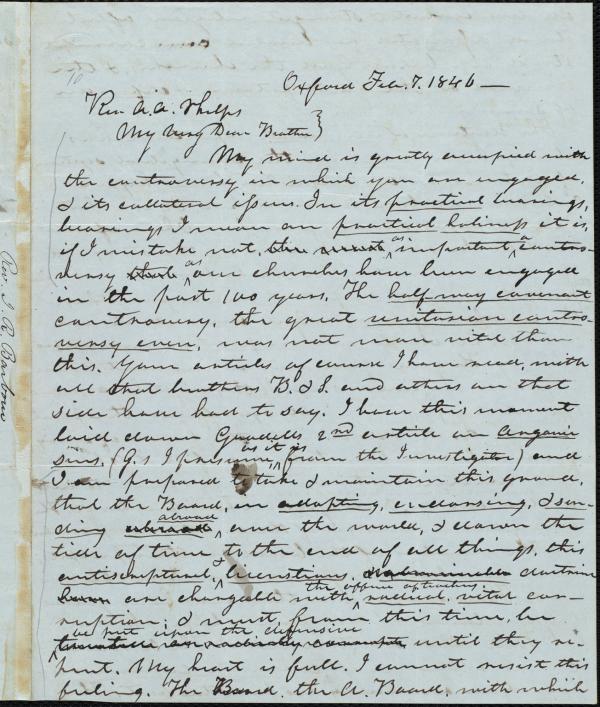 Oxford Feb. 7. 1846—
Rev. A. A. Phelps
My Very Dear Brother}
My mind is greatly occupied with
the controversy in which you are engaged,
& its collateral issues. In its practical bearings,
bearings I mean on practical holiness it is,
if I mistake not, the most as important a contro-
versy that as our churches have been engaged
in the past 100 years. The half way covenant
controversy, the great unitarian contro-
versy even, was not more vital than
this. Your articles of course I have read, with
all that brothers B. & S. and others on that
side have had to say. I have this moment
laid down Goodell's 2nd article on organic
sins, (G.'s I presume as it is from the Investigator) and
I am prepared to take & maintain this ground,
that the Board, in adopting, endorsing, & sen-
ding abroad abroad over the world, & down the
tide of time to the end of all things, this
antiscriptural & licentious doctrine
are chargeable with the offence of teaching radical, vital cor-
ruption; & must, from this time, be
be put upon the defensive until they re-
pent. My heart is full. I cannot resist this
feeling. The Board, the A. Board, with which
Rev. I. R. Barbour